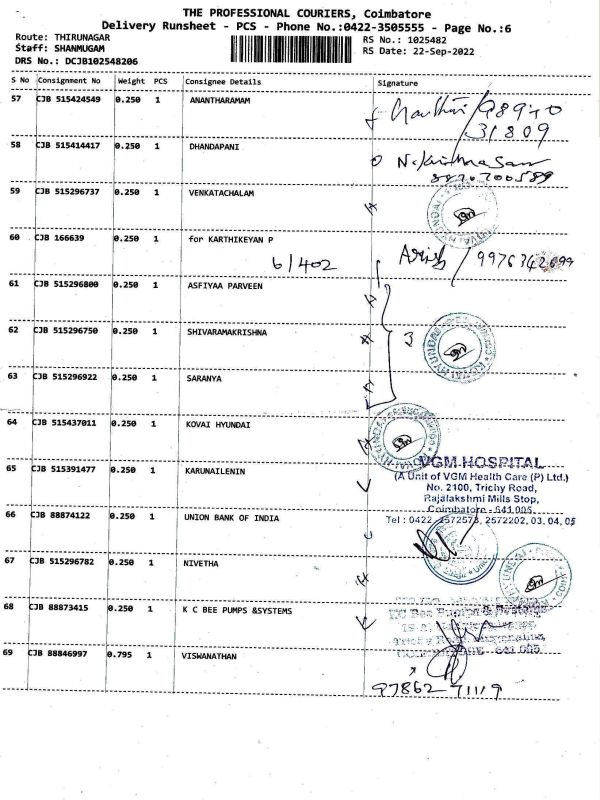 THE PROFESSIONAL COURIERS, Coimbatore
Delivery Runsheet - PCS - Phone No.:0422-3505555 - Page No.:6
Route: THIRUNAGAR
RS No.: 1025482
Staff: SHANMUGAM
RS Date: 22-Sep-2022
DRS No.: DCJB102548206
S No Consignment No Weight PCS Consignee Details Signature
57 CJB 515424549 0.250 1 ANANTHARAMAM
31809
58 CJB 515414417 0.250 1 DHANDAPANI
59 CJB 515296737 0.250 1 VENKATACHALAM
60 CJB 166639 0.250 1 for KARTHIKEYAN P
6/402
61 CJB 515296800 0.250 1 ASFIYAA PARVEEN
62 CJB 515296750 0.250 1 SHIVARAMAKRISHNA
3
63 CJB 515296922 0.250 1 SARANYA
64 CJB 515437011 0.250 1 KOVAI HYUNDAI
65 CJB 515391477 0.250 1 KARUNAILENIN
VGM HOSPITAL
(A Unit of VGM Health Care (P) Ltd.)
No. 2100, Trichy Road,
Rajalakshmi Mills Stop,
Coimbatore - 641 005.
Tel : 0422 2572573, 2572202, 03, 04, 05
66 CJB 88874122 0.250 1 UNION BANK OF INDIA
67 CJB 515296782 0.250 1 NIVETHA
68 CJB 88873415 0.250 1 K C BEE PUMPS &SYSTEMS
69 CJB 88846997 0.795 1 VISWANATHAN
97862 71119